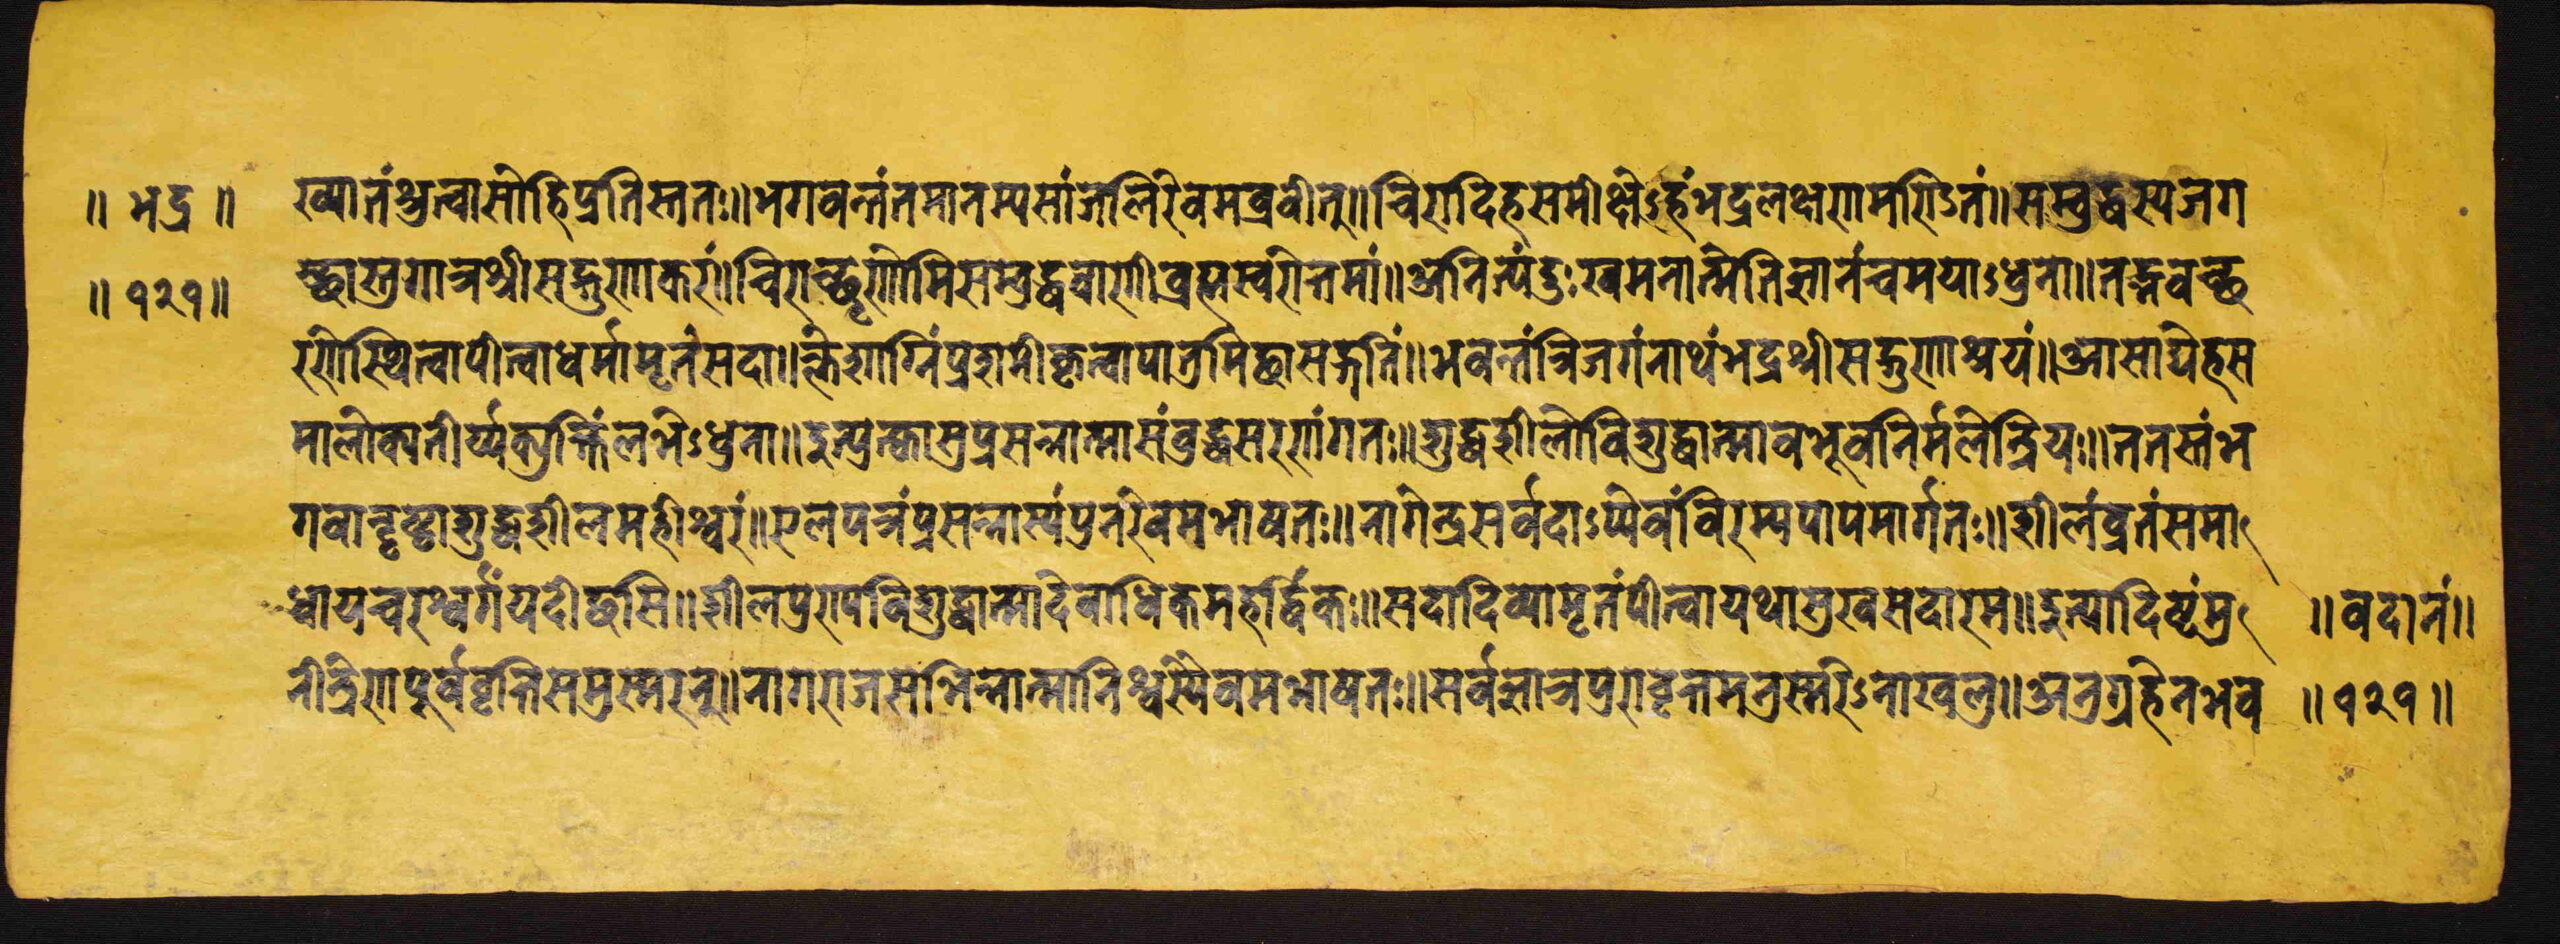 ॥ भद्र ॥ ख्यातंश्रुत्वासोहिप्रतिस्ततः॥भगवन्तंतमानम्यसांजलिरेवमब्रवीत्॥चिरादिहसमीक्षेऽहंभद्रलक्षणमण्डितं॥सम्बुद्धस्यजग
॥ १२१॥ च्छास्तुगात्रश्रीसद्गुणाकरं॥चिराच्छृणोमिसम्बुद्धवाणीब्रह्मस्वरोत्तमां॥अनित्यंदुःखमनात्मेतिज्ञानंचमयाऽधुना॥तद्भवच्छ
रणेस्थित्वापीत्वाधर्मामृतंसदा॥क्लेशाग्निंप्रशमीकृत्वापातुमिच्छासद्गतिं॥भवन्तंत्रिजगंनाथंभद्रश्रीसद्गुणाश्रयं॥आसाद्येहस
मालोक्यतीर्य्यक्युक्तिंलभेऽधुना॥इत्युत्क्वासुप्रसन्नात्मासंबुद्धसरणंगतः॥शुद्धशीलोविशुद्धात्मावभूवनिर्मलेन्द्रियः॥ततस्तंभ
गवान्दृष्ट्वाशुद्धशीलमहीश्वरं॥एलपत्रंप्रसन्नास्यंपुनरेवमभाषतः॥नागेन्द्रसर्वदाऽप्येवंविरम्यपापमार्गतः॥शीलंव्रतंसमा
ध्वायचरश्वर्गंयदीच्छसि॥शीलपुण्यविशुद्धात्मादेवाधिकमहर्द्धिकः॥सदादिव्यामृतंपीत्वायथासुखसदारम॥इत्यादिष्टंमु ॥वदानं॥
नीन्द्रेणपूर्ववृत्तिसमुस्मरन्॥नागराजसभिन्नात्मानिश्वस्यैवमभाषतः॥सर्वज्ञात्रपुरावृत्तमनुस्मरेऽनाखलु॥अनुग्रहेनभव ॥१२१॥